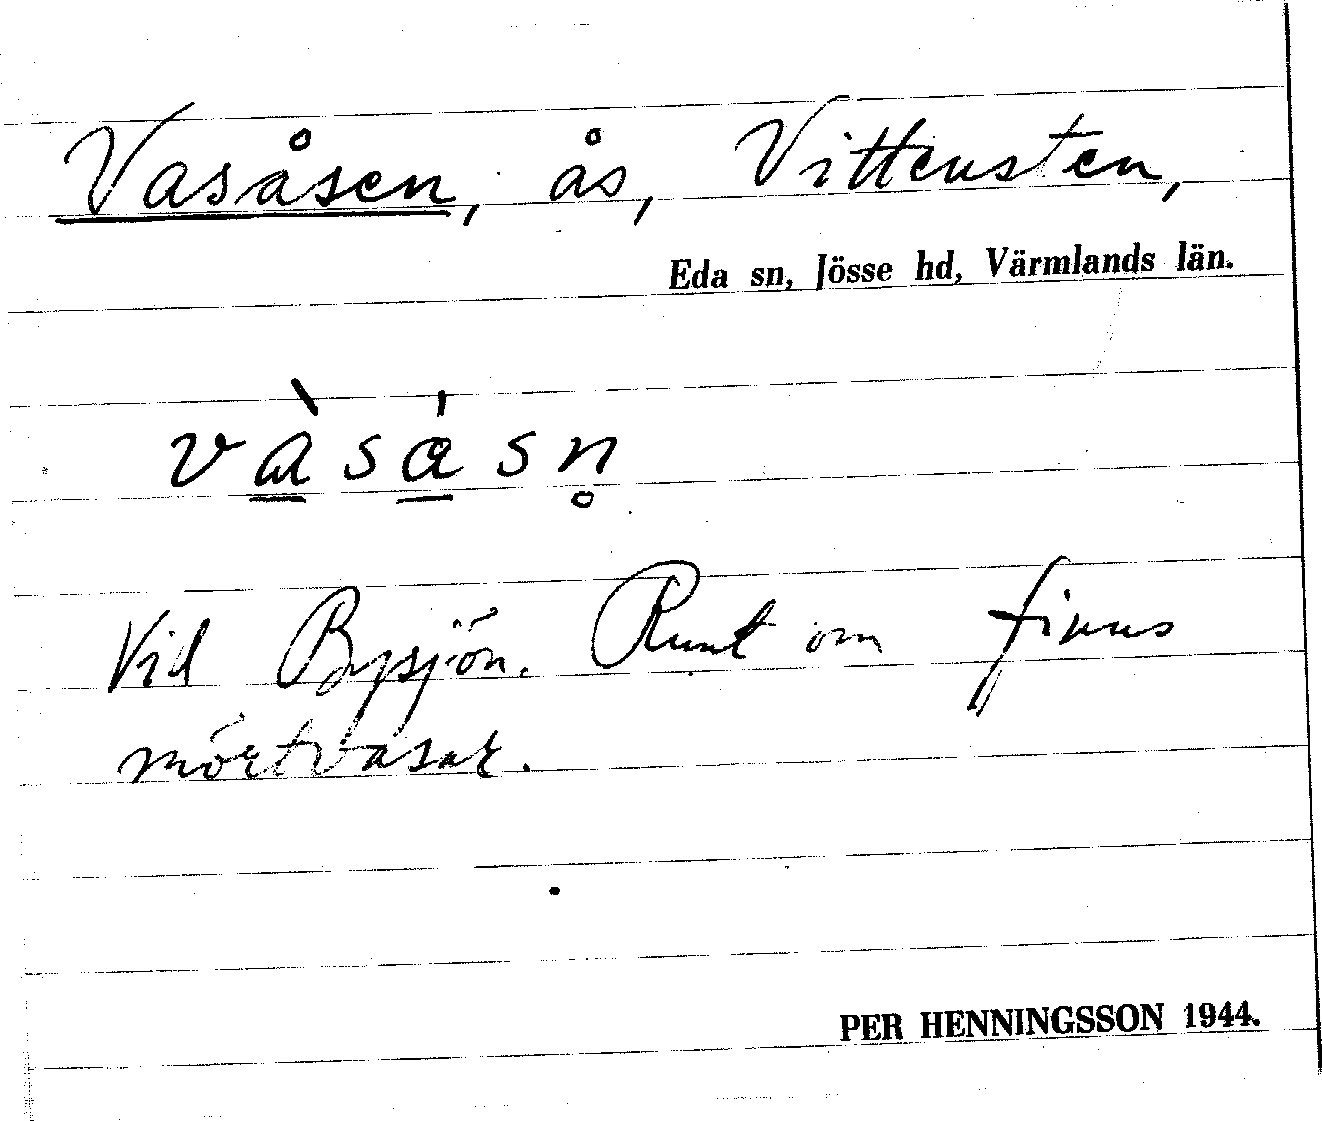 Vasåsen, ås, Vittensten,
Eda sn, Jösse hd, Värmlands län.
v à̲ s á̲ s n̥
Vid Bysjön. Runt om finns
mörtvasar.
PER HENNINGSSON 1944.